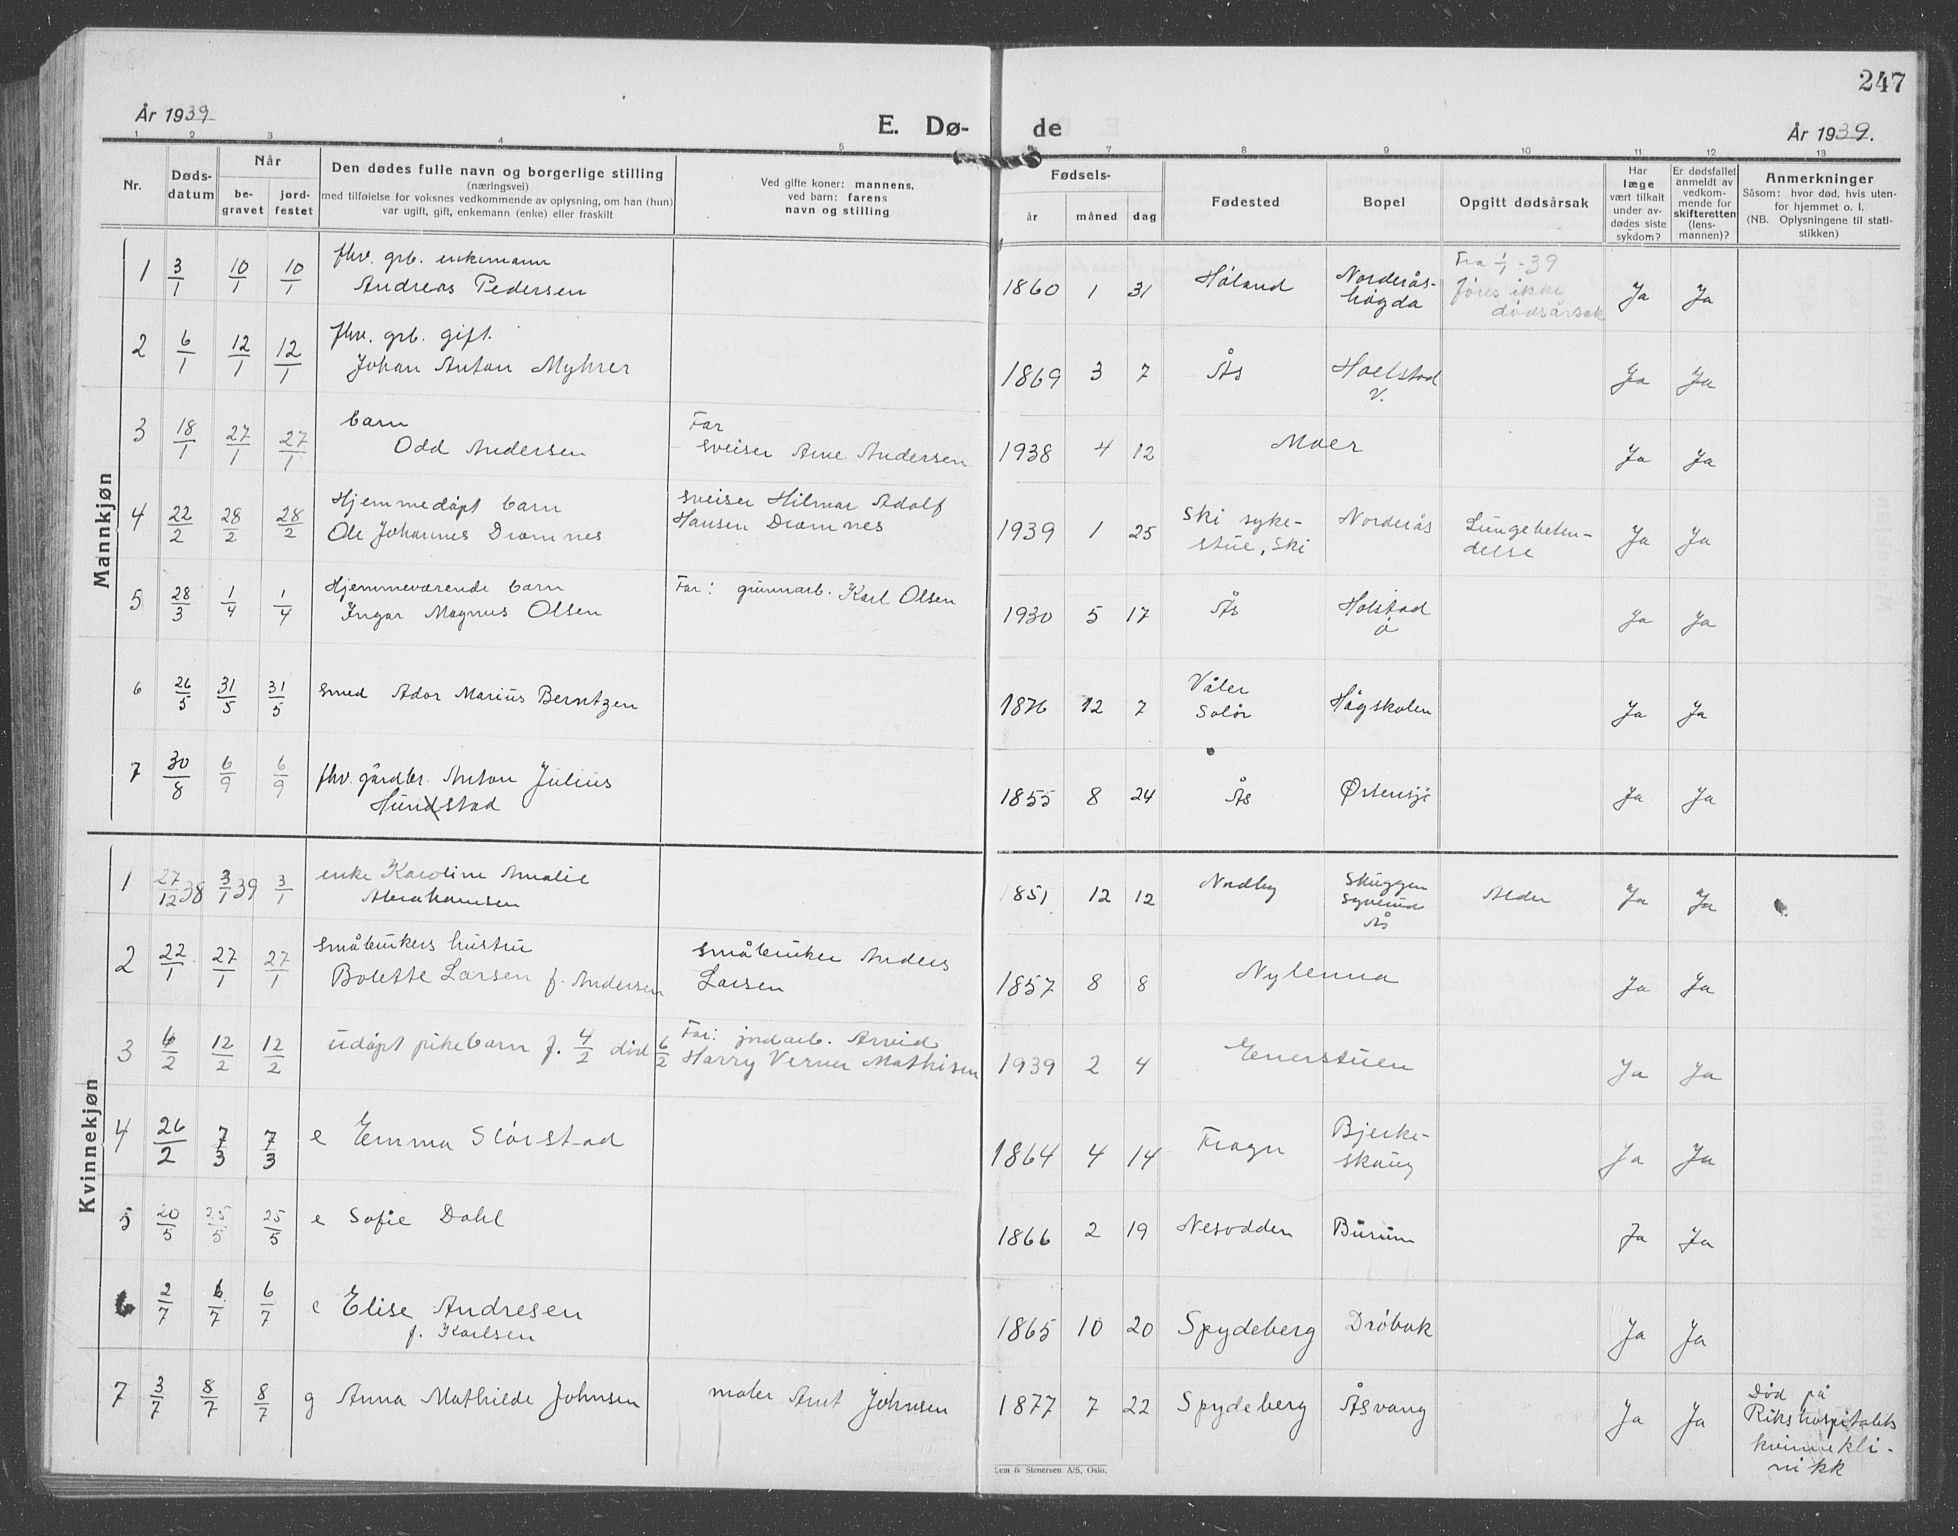 247
År 1939
E. Dø- de
År 1939.
1 2 3 4 5 7 8 9 10 11 12 13
Nr.
Døds-datum
Når
be-gravet
jord-festet
Den dødes fulle navn og borgerlige stilling
(næringsvei)
med tilføielse for voksnes vedkommende av oplysning, om han (hun)
var ugift, gift, enkemann (enke) eller fraskilt
Ved gifte koner: mannens,
ved barn: farens
navn og stilling
Fødsels-
år måned dag
Fødested
Bopel
Opgitt dødsårsak
Har
læge
vært tilkalt
under av-
dødes siste
sykdom?
Er dødsfallet
anmeldt av
vedkom-
mende for
skifteretten
(lens-
mannen)?
Anmerkninger
Såsom: hvor død, hvis uten-
for hjemmet o. l.
(NB. Oplysningene til stati-
stikken)
Mannkjøn
1 3/1 10/1 10/1 fhv. grb. enkemann
Andreas Pedersen
1860 1 31 Høland Norderås-
høgda
Fra 1/1-39
føres ikke
dødsårsak
Ja Ja
2 6/1 12/1 12/1 fhv. grb. gift.
Johan Anton Myhrer
1869 3 7 Ås Holstad
V.
Ja Ja
3 18/1 27/1 27/1 barn
Odd Andersen
Far
sveiser Arne Andersen
1938 4 12 Moer Ja Ja
4 22/2 28/2 28/2 Hjemmedøpt barn
Ole Johannes Dramnes
sveiser Hilmar Adolf
Hansen Dramnes
1939 1 25 Ski syke-
stue, Ski
Norderås
Lungebeten-
delse
Ja Ja
5 28/3 1/4 1/4 Hjemmeværende barn
Ingar Magnus Olsen
Far: grunnarb. Karl Olsen
1930 5 17 Ås Holstad
ø
Ja Ja
6 26/5 31/5 31/5 smed Ador Marius Berntzen
1876 12 7 Våler
Solør
Høgskolen Ja Ja
7 30/8 6/9 6/9 fhv. gårdbr. Anton Julius
Hundstad
1855 8 24 Ås Østensjø Ja Ja
Kvinnekjøn
1 27/12 38 3/1 39 3/1 enke Karoline Amalie
Abrahamsen
1851 12 12 Nordby Skuggen
Syverud
Ås
Alder Ja Ja
2 22/1 27/1 27/1 småbrukers hustru
Bolette Larsen f. Andersen
småbruker Anders
Larsen
1857 8 8 Nylenna Ja Ja
3 6/2 12/2 12/2 udøpt pikebarn f. 4/2 død 6/2
Far: jordarb. Arvid
Harry Verner Mathisen
1939 2 4 Enerstuen Ja Ja
4 26/2 7/3 7/3 e Emma Slørstad
1864 4 14 Frogn Bjerke-
skaug
Ja Ja
5 20/5 25/5 25/5 e Sofie Dahl
1866 2 19 Nesodden Burum Ja Ja
6 2/7 6/7 6/7 e Elise Andresen
f. Karlsen
1865 10 20 Spydeberg Drøbak Ja Ja
7 3/7 8/7 8/7 g Anna Mathilde Johnsen
maler Arnt Johnsen
1877 7 22 Spydeberg Åsvang Ja Ja
Død på
Rikshospitalets
kvinnekli-
nikk
Sem & Stenersen A/S, Oslo.